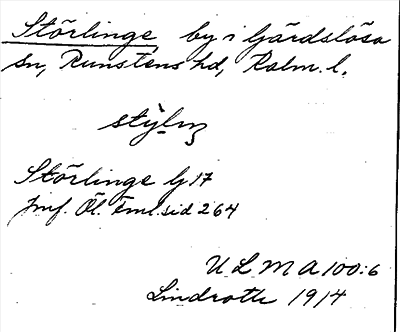 Störlinge by i Gärdslösa
sn, Runstens hd, Kalm. l.
Störlinge G 17
Jmf. Öl. Eml. sid 264
U L M A 100:6
Lindroth 1914